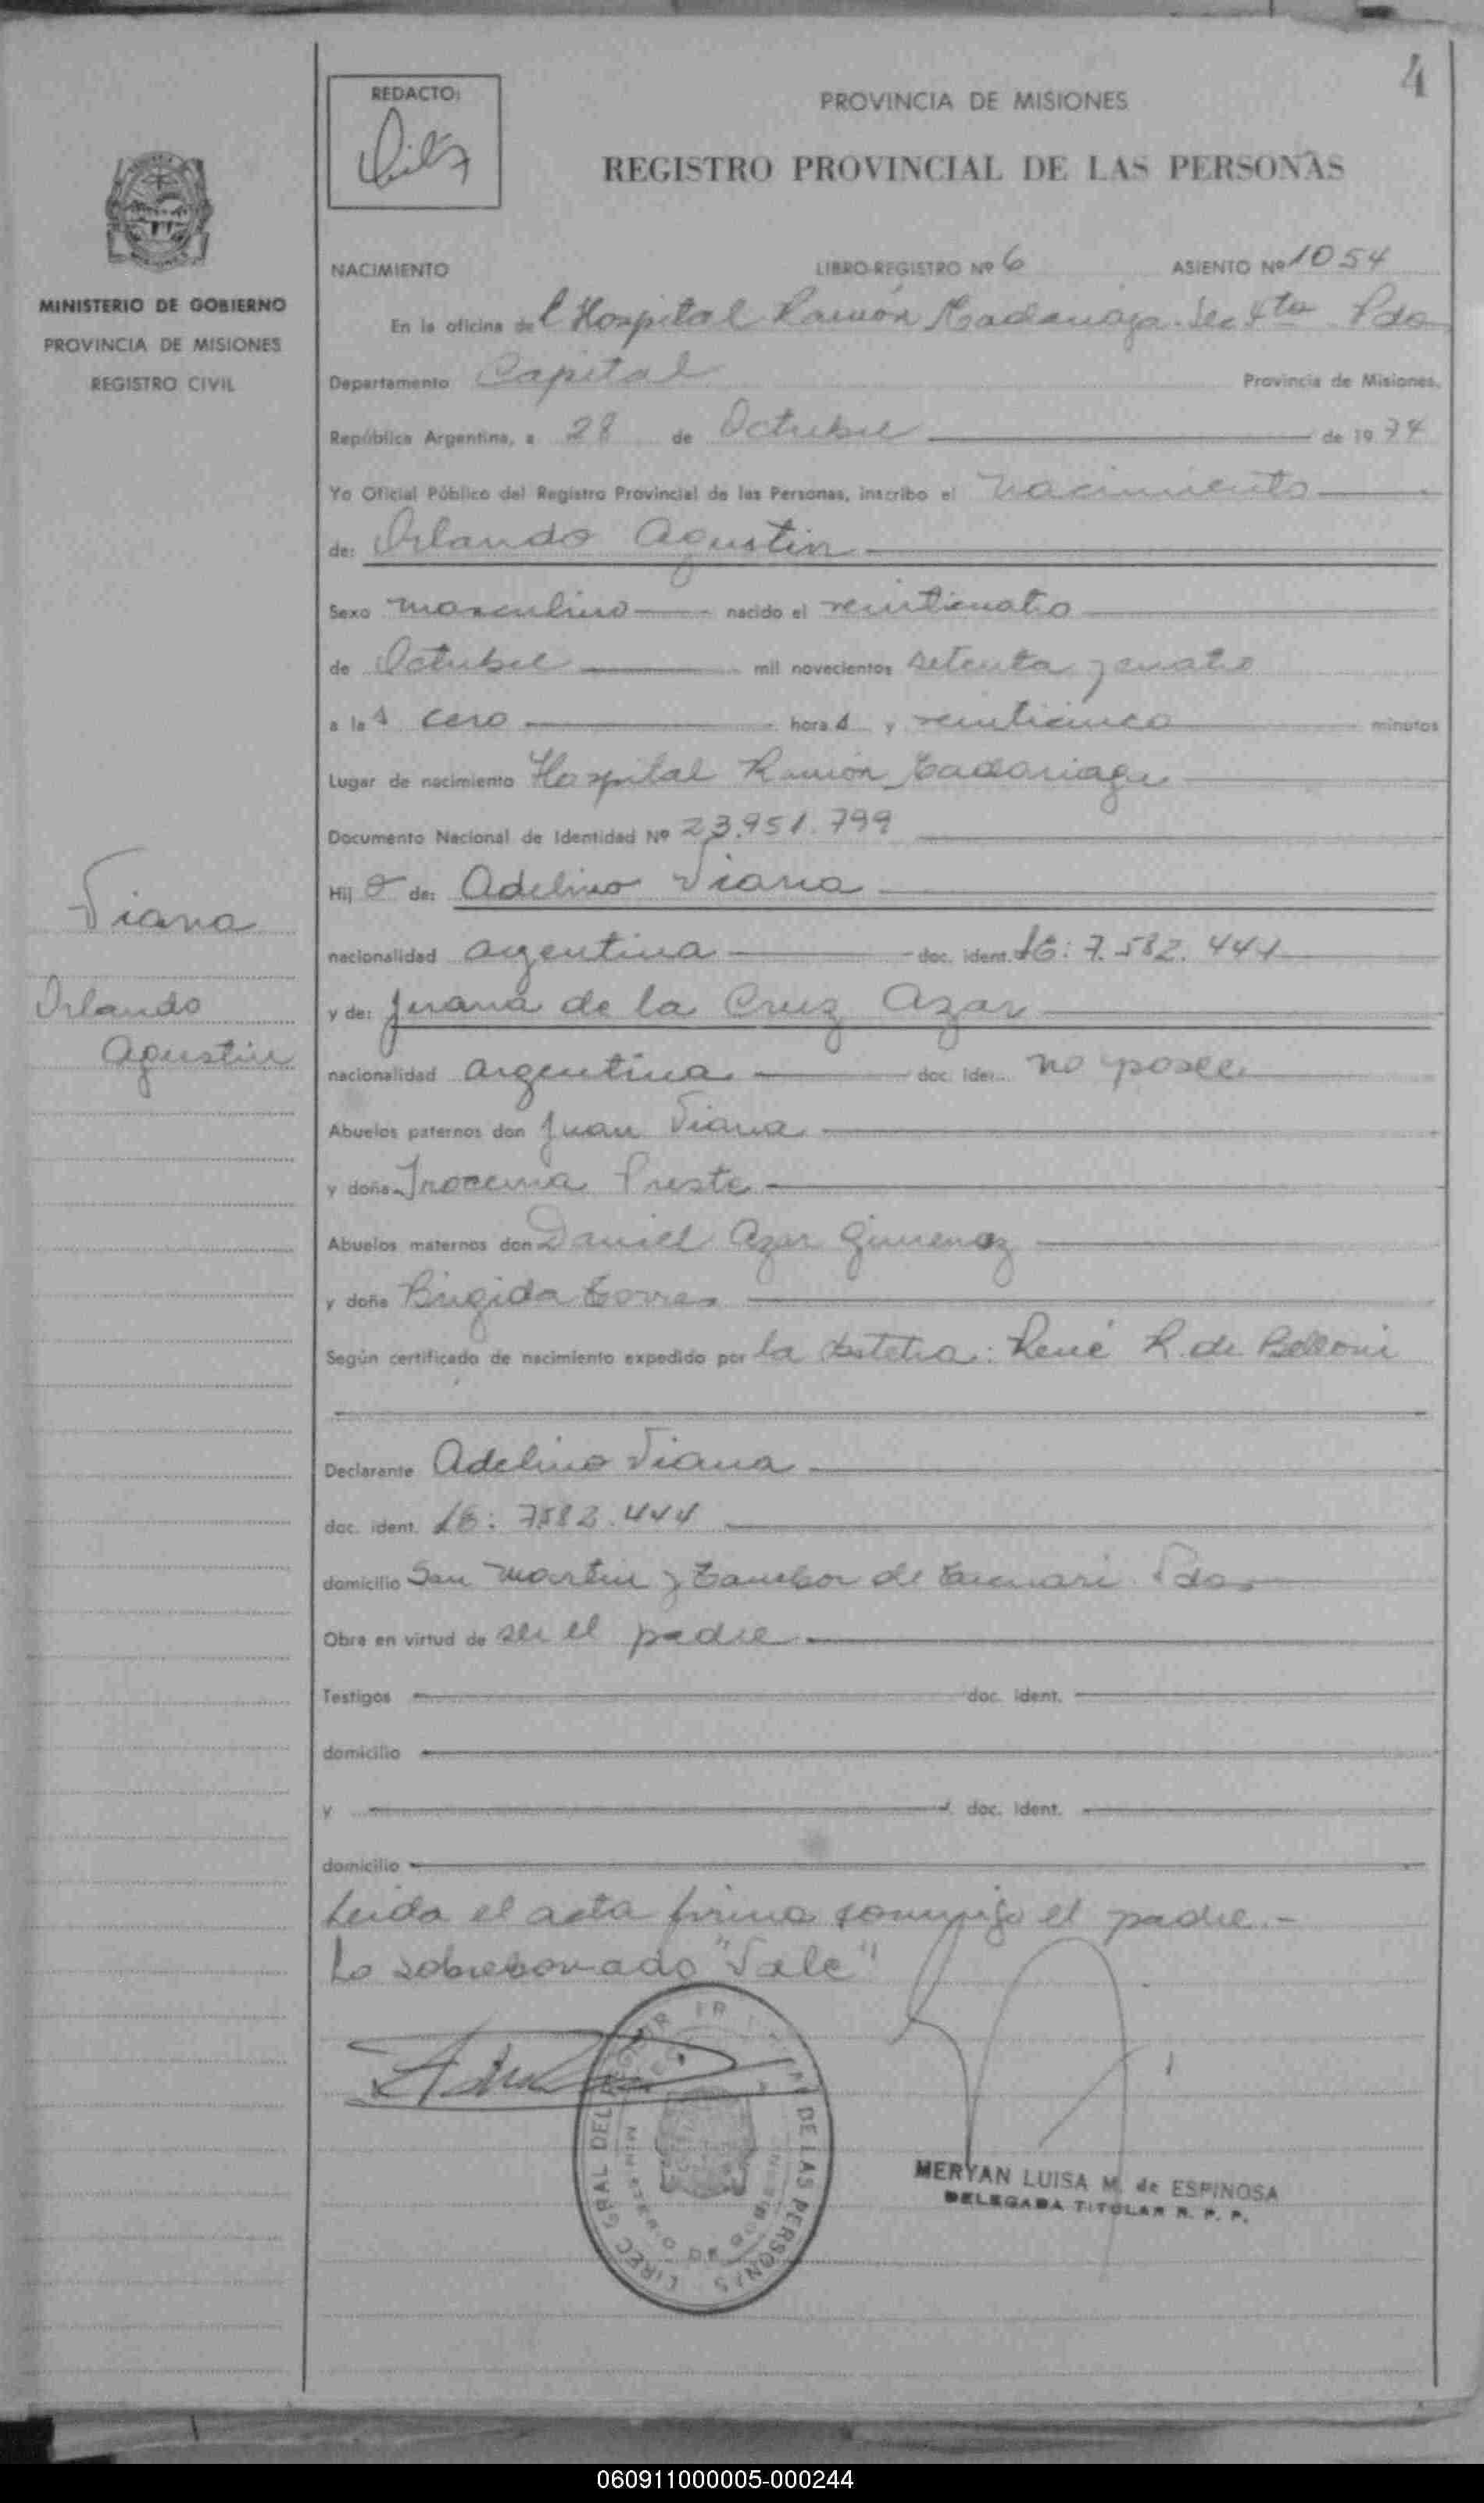 4
REDACTO:
PROVINCIA DE MISIONES
REGISTRO PROVINCIAL DE LAS PERSONAS
NACIMIENTO LIBRO-REGISTRO Nº 6 ASIENTO Nº 1054
MINISTERIO DE GOBIERNO
PROVINCIA DE MISIONES
REGISTRO CIVIL
En la oficina del Hospital Ramón Madariaga. Sec 4ta Pdas
Departamento Capital Provincia de Misiones.
República Argentina, a 28 de Octubre de 1974
Yo Oficial Público del Registro Provincial de las Personas, inscribo el nacimiento
de: Orlando Agustin
Sexo masculino nacido el veinticuatro
de Octubre mil novecientos setenta y cuatro
a las cero horas y veinticinco minutos
Lugar de nacimiento Hospital Ramón Madariaga
Documento Nacional de Identidad Nº 23.951.799
Hijo de: Adelino Viana
nacionalidad argentina doc. ident. LE: 7.582.444
y de: Juana de la Cruz Azar
nacionalidad argentina doc. iden. no posee
Abuelos paternos don Juan Viana
y doña Preste
Abuelos maternos don Daniel Azar Gimenez
y doña Brigida Torres
Según certificado de nacimiento expedido por la obstetra: René R. de Belloni
Declarante Adelino Viana
doc. ident. LE: 7582.444
domicilio San Martin y Tambor de Tacuari Pdas
Obra en virtud de ser el padre
Testigos doc. ident.
domicilio
y doc. ident.
domicilio
Leida el acta firma conmigo el padre.-
Lo sobreborrado "Vale"
Viana
Orlando
Agustin
DIREC. GRAL DEL REGISTR PROVINCIAL DE LAS PERSONAS
MINISTERIO DE GOBIERNO
MERYAN LUISA M. de ESPINOSA
DELEGADA TITULAR R. P. P.
060911000005-000244